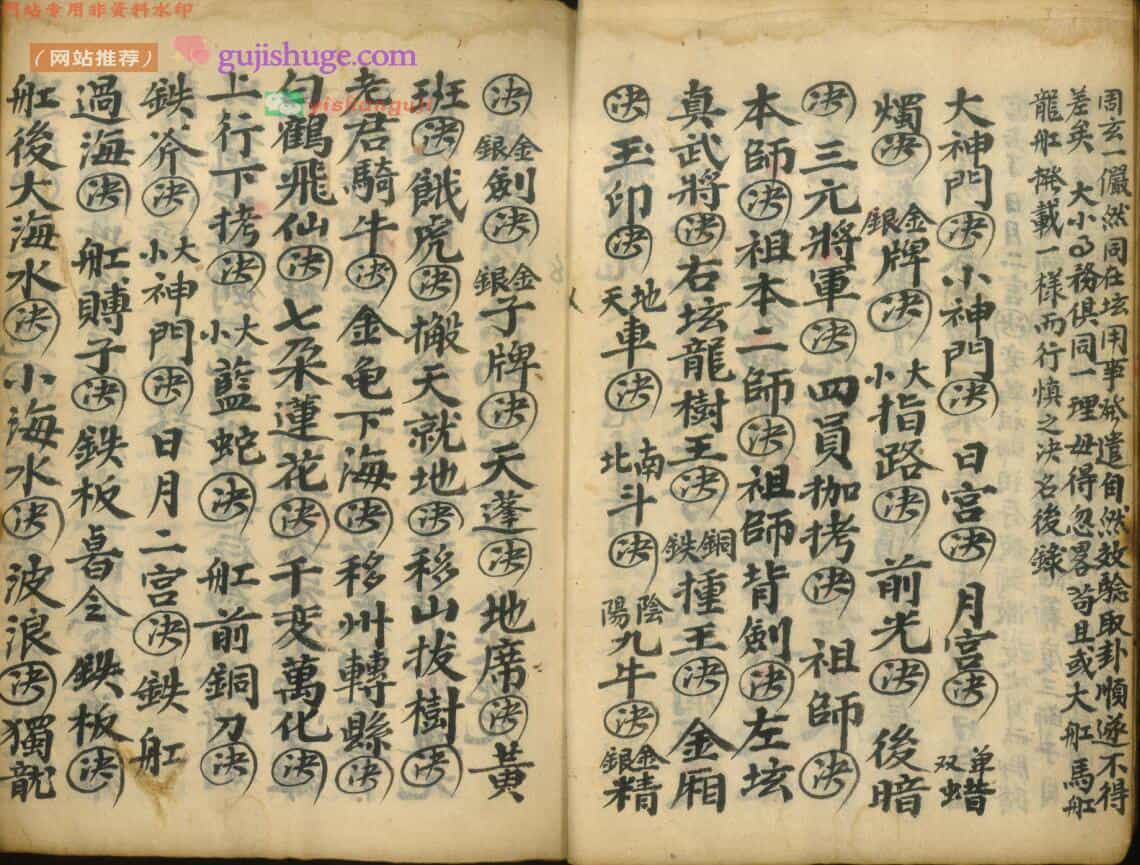 网站专用非资料水印
(网站推荐)
gujishuge.com
yishanguji
周玄一儼然同在坛用事發遣自然效驗取卦順遂不得
差矣 大小事務俱同一理毋得忽畧苟且或大舡馬舡
龍舡橃載一樣而行慎之决名後錄
大神門决小神門决 日宮决 月宮决 单双蜡
燭决 金銀牌决 大小指路决 前光决 後暗
决三元將軍决四員枷拷决 祖師决
本師决祖本二師决祖師背劍决左坛
真武將决右坛龍樹王决銅鉄撞王决金厢
决玉印决 地天車决 南北斗决 陰陽九牛决金銀精
决金銀劍决金銀子牌决天蓬决地席决黃
班决餓虎决搬天就地决移山拔樹决
老君騎牛决金龟下海决移州轉縣决
勾鶴飛仙决七朵蓮花决千变萬化决
上行下拷决大小藍蛇决 舡前銅刀决
鉄斧决大小神門决日月二宮决鉄舡
過海决 舡賻子决鉄板 令 鉄板决
舡後大海水决小海水决 波浪决獨龍